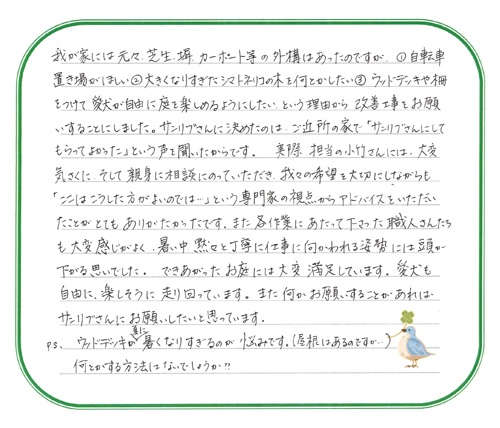 我が家には元々、芝生、塀、カーポート等の外構はあったのですが、①自転車
置き場がほしい②大きくなりすぎたシマトネリコの木を何とかしたい③ウッドデッキや柵
をつけて愛犬が自由に庭を楽しめるようにしたいという理由から、改善工事をお願
いすることにしました。サンリブさんに決めたのは、ご近所の家で「サンリブさんにして
もらってよかった」という声を聞いたからです。 実際、担当の小竹さんには、大変
気さくに、そして親身に相談にのっていただき、我々の希望を大切にしながらも
「ここはこうした方がよいのでは…」という専門家の視点からアドバイスをいただい
たことがとてもありがたかったです。また各作業にあたって下さった職人さんたち
も大変感じがよく、暑い中黙々と丁寧に仕事に向かわれる姿勢には頭が
下がる思いでした。 できあがったお庭には大変満足しています。愛犬も
自由に、楽しそうに走り回っています。また何かお願いすることがあれば
サンリブさんにお願いしたいと思っています。
P.S. ウッドデッキが夏に暑くなりすぎるのが悩みです。(屋根はあるのですが…)
何とかする方法はないでしょうか??